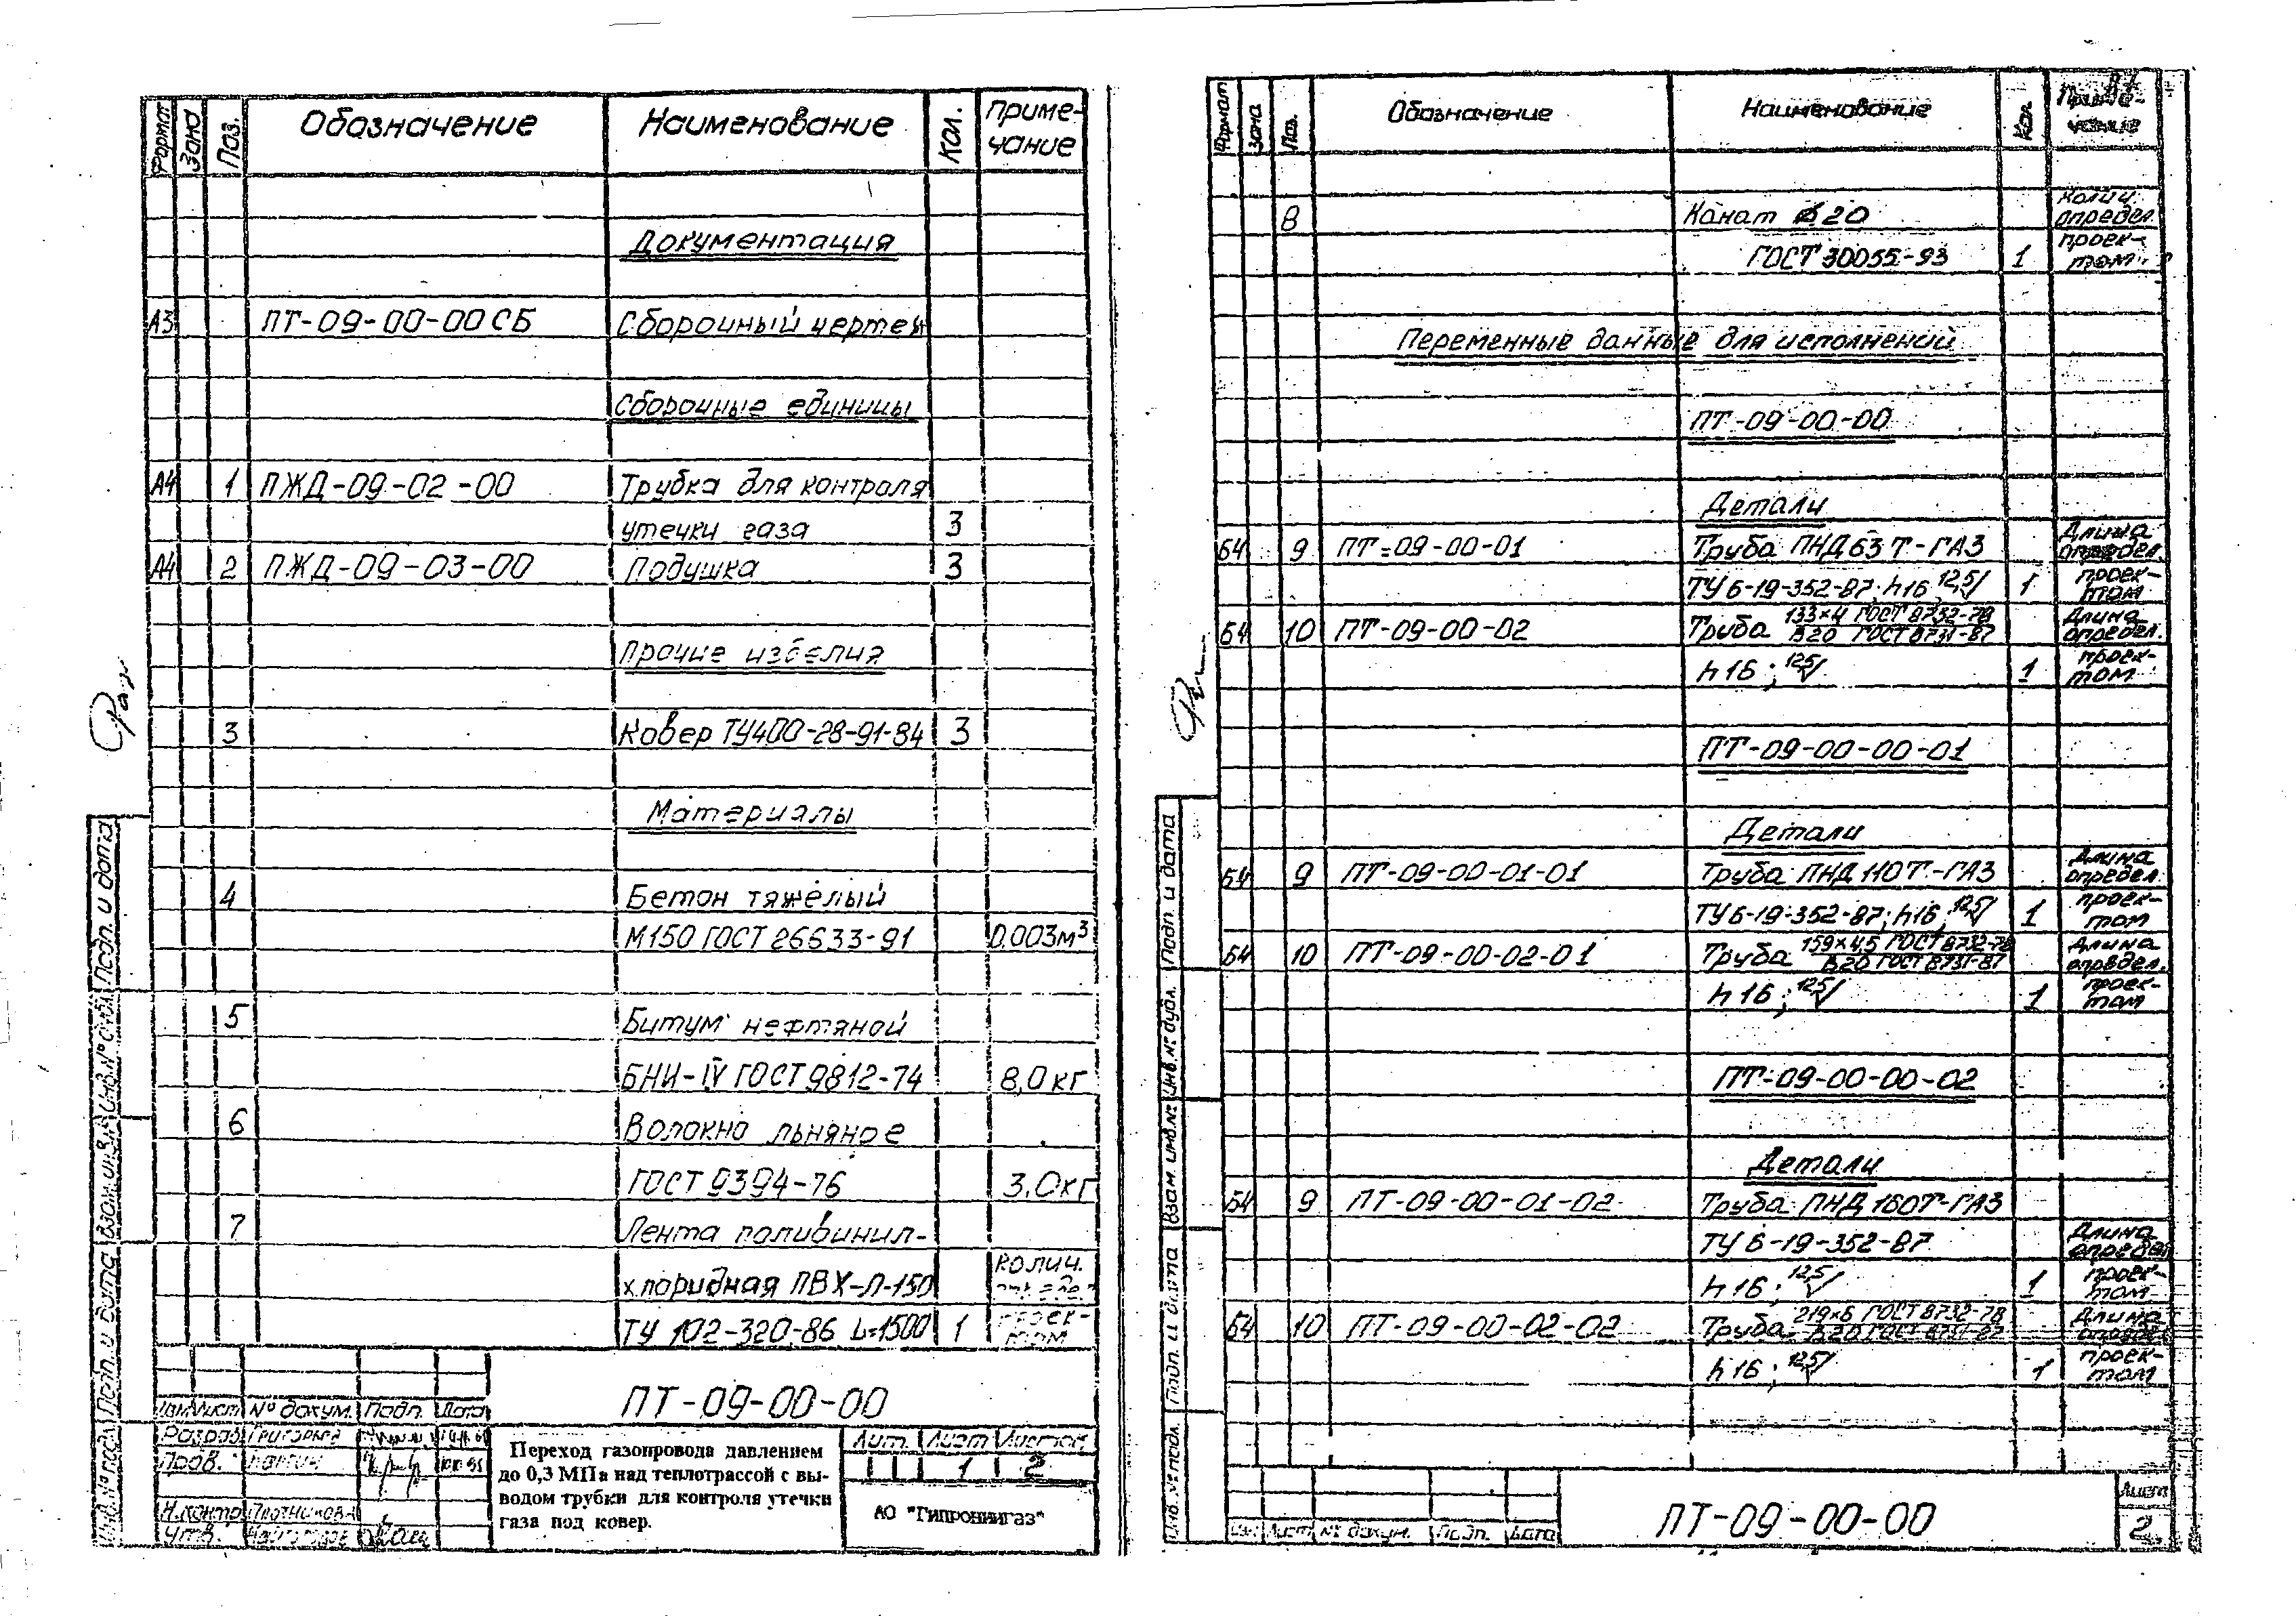 Формат Зона Поз. Обозначение Наименование Кол. Приме-
чание
Документация
А3 ПТ-09-00-00 СБ Сборочный чертеж
Сборочные единицы
А4 1 ПЖД-09-02-00 Трубка для контроля
утечки газа 3
А4 2 ПЖД-09-03-00 Подушка 3
Прочие изделия
3 Ковер ТУ400-28-91-84 3
Материалы
4 Бетон тяжелый
М150 ГОСТ 26633-91 0,003м³
5 Битум нефтяной
БНИ-IV ГОСТ 9812-74 8,0 кг
6 Волокно льняное
ГОСТ 9394-76 3,0 кг
7 Лента поливинил-
хлоридная ПВХ-Л-150 Колич.
ТУ 102-320-86 L=1500 1 проек-
том
ПТ-09-00-00
Изм Лист № докум. Подп. Дата
Разраб.
Пров.
Н.контр.
Утв.
Переход газопровода давлением
до 0,3 МПа над теплотрассой с вы-
водом трубки для контроля утечки
газа под ковер.
Лит. Лист Листов
1 2
АО "Гипрониигаз"
Подп. и дата
Инв. № дубл.
Взам. инв. №
Подп. и дата
Инв. № подл.
Формат Зона Поз. Обозначение Наименование Кол Приме-
чание
8 Канат ⌀20 Колич.
определ.
ГОСТ 30055-93 1 проек-
том
Переменные данные для исполнений
ПТ-09-00-00
Детали
Б4 9 ПТ-09-00-01 Труба ПНД 63 Т-ГАЗ Длина
определ.
ТУ 6-19-352-87; h16; 12,5/ 1 проек-
том
Б4 10 ПТ-09-00-02 Труба 133×4 ГОСТ 8732-78 Длина
В20 ГОСТ 8731-87 определ.
h16; 12,5/ 1 проек-
том
ПТ-09-00-00-01
Детали
Б4 9 ПТ-09-00-01-01 Труба ПНД 110Т-ГАЗ Длина
определ.
ТУ 6-19-352-87; h16; 12,5/ 1 проек-
том
Б4 10 ПТ-09-00-02-01 Труба 159×4,5 ГОСТ 8732-78 Длина
В20 ГОСТ 8731-87 определ.
h16; 12,5/ 1 проек-
том
ПТ-09-00-00-02
Детали
Б4 9 ПТ-09-00-01-02 Труба ПНД 160Т-ГАЗ
ТУ 6-19-352-87 Длина
определ
h16; 12,5/ 1 проек-
том
Б4 10 ПТ-09-00-02-02 Труба 219×6 ГОСТ 8732-78 Длина
В20 ГОСТ 8731-87 определ
h16; 12,5/ 1 проек-
том
Изм Лист № докум. Подп. Дата
ПТ-09-00-00
Лист
2
Подп. и дата
Инв. № дубл.
Взам. инв. №
Подп. и дата
Инв. № подл.